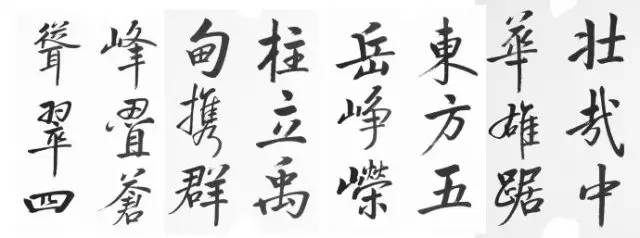 壮哉中
華雄踞
東方五
岳峥嶸
柱立禹
甸携群
峰疊蒼
聳翠四